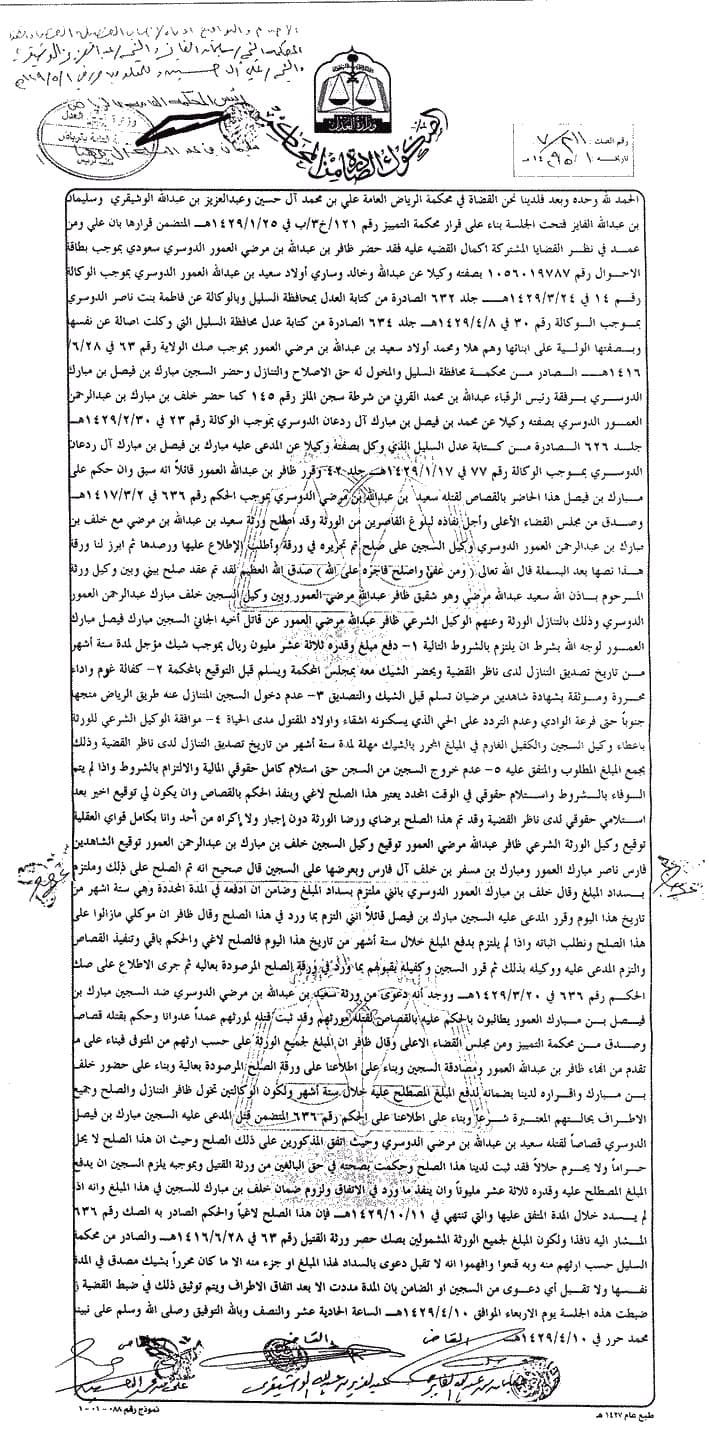 وزارة العدل
صكوك الصادرة من المحاكم
رقم الصك
تاريخه
الحمد لله وحده وبعد فلدينا نحن القضاة في محكمة الرياض العامة علي بن محمد آل حسين وعبدالعزيز بن عبدالله الوشيقري وسليمان
بن عبدالله الفايز فتحت الجلسة بناء على قرار محكمة التمييز رقم ١٢١/خ/٣/ب في ١٤٢٩/١/٢٥هـ المتضمن قرارها بان علي ومن
عمد في نظر القضايا المشتركة اكمال القضيه عليه فقد حضر ظافر بن عبدالله بن مرضي العمور الدوسري سعودي بموجب بطاقة
الاحوال رقم ١٠٥٦٠١٩٧٨٧ بصفته وكيلا عن عبدالله وخالد وساري أولاد سعيد بن عبدالله العمور الدوسري بموجب الوكالة
رقم ١٤ في ١٤٢٩/٣/٢٤هـ جلد ٦٣٢ الصادرة من كتابة العدل بمحافظة السليل وبالوكالة عن فاطمة بنت ناصر الدوسري
بموجب الوكالة رقم ٣٠ في ١٤٢٩/٤/٨هـ جلد ٦٣٤ الصادرة من كتابة عدل محافظة السليل التي وكلت اصالة عن نفسها
وبصفتها الولية على ابنائها وهم هلا ومحمد أولاد سعيد بن عبدالله بن مرضي العمور بموجب صك الولاية رقم ٦٣ في ٦/٢٨/
١٤١٦هـ الصادر من محكمة محافظة السليل والمخول له حق الاصلاح والتنازل وحضر السجين مبارك بن فيصل بن مبارك
الدوسري برفقة رئيس الرقباء عبدالله بن محمد القرني من شرطة سجن الملز رقم ١٤٥ كما حضر خلف بن مبارك بن عبدالرحمن
العمور الدوسري بصفته وكيلا عن محمد بن فيصل بن مبارك آل ردعان الدوسري بموجب الوكالة رقم ٢٣ في ١٤٢٩/٢/٣٠هـ
جلد ٦٢٦ الصادرة من كتابة عدل السليل الذي وكل بصفته وكيلا عن المدعى عليه مبارك بن فيصل بن مبارك آل ردعان
الدوسري بموجب الوكالة رقم ٧٧ في ١٤٢٩/١/١٧هـ جلد ٤٢ وقرر ظافر بن عبدالله العمور قائلاً انه سبق وان حكم على
مبارك بن فيصل هذا الحاضر بالقصاص لقتله سعيد بن عبدالله بن مرضي الدوسري بموجب الحكم رقم ٦٣٦ في ١٤١٧/٣/٢هـ
وصدق من مجلس القضاء الأعلى وأجل نفاذه لبلوغ القاصرين من الورثة وقد اصطلح ورثة سعيد بن عبدالله بن مرضي مع خلف بن
مبارك بن عبدالرحمن العمور الدوسري وكيل السجين على صلح تم تحريره في ورقة وأطلب الإطلاع عليها ورصدها ثم ابرز لنا ورقة
هذا نصها بعد البسملة قال الله تعالى ( ومن عفى واصلح فاجره على الله ) صدق الله العظيم لقد تم عقد صلح بيني وبين وكيل ورثة
المرحوم باذن الله سعيد عبدالله مرضي وهو شقيق ظافر عبدالله مرضي العمور وبين وكيل السجين خلف مبارك عبدالرحمن العمور
الدوسري وذلك بالتنازل الورثة وعنهم الوكيل الشرعي ظافر عبدالله مرضي العمور عن قاتل أخيه الجاني السجين مبارك فيصل مبارك
العمور لوجه الله بشرط ان يلتزم بالشروط التالية ١- دفع مبلغ وقدره ثلاثة عشر مليون ريال بموجب شيك مؤجل لمدة ستة أشهر
من تاريخ تصديق التنازل لدى ناظر القضية ويحضر الشيك معه بمجلس المحكمة ويسلم قبل التوقيع بالمحكمة ٢- كفالة غرم واداء
محررة وموثقة بشهادة شاهدين مرضيان تسلم قبل الشيك والتصديق ٣- عدم دخول السجين المتنازل عنه طريق الرياض متجها
جنوباً حتى فرعة الوادي وعدم التردد على الحي الذي يسكنونه اشقاء واولاد المقتول مدى الحياة ٤- موافقة الوكيل الشرعي للورثة
باعطاء وكيل السجين والكفيل الغارم في المبلغ المحرر بالشيك مهلة لمدة ستة أشهر من تاريخ تصديق التنازل لدى ناظر القضية وذلك
بجمع المبلغ المطلوب والمتفق عليه ٥- عدم خروج السجين من السجن حتى استلام كامل حقوقي المالية والالتزام بالشروط واذا لم يتم
الوفاء بالشروط واستلام حقوقي في الوقت المحدد يعتبر هذا الصلح لاغي وينفذ الحكم بالقصاص وان يكون لي توقيع اخير بعد
استلامي حقوقي لدى ناظر القضية وقد تم هذا الصلح برضاي ورضا الورثة دون إجبار ولا إكراه من أحد وانا بكامل قواي العقلية
توقيع وكيل الورثة الشرعي ظافر عبدالله مرضي العمور توقيع وكيل السجين خلف بن مبارك بن عبدالرحمن العمور توقيع الشاهدين
فارس ناصر مبارك العمور ومبارك بن مسفر بن خلف آل فارس وبعرضها على السجين قال صحيح انه تم الصلح على ذلك وملتزم
بسداد المبلغ وقال خلف بن مبارك العمور الدوسري بانني ملتزم بسداد المبلغ وضامن ان ادفعه في المدة المحددة وهي ستة اشهر من
تاريخ هذا اليوم وقرر المدعى عليه السجين مبارك بن فيصل قائلاً انني التزم بما ورد في هذا الصلح وقال ظافر ان موكلي مازالوا على
هذا الصلح ونطلب اثباته واذا لم يلتزم بدفع المبلغ خلال ستة أشهر من تاريخ هذا اليوم فالصلح لاغي والحكم باقي وتنفيذ القصاص
والتزم المدعى عليه ووكيله بذلك ثم قرر السجين وكفيله بقبولهم بما ورد في ورقة الصلح المرصودة بعاليه ثم جرى الاطلاع على صك
الحكم رقم ٦٣٦ في ١٤٢٩/٣/٢٠هـ ووجد أنه دعوى من ورثة سعيد بن عبدالله بن مرضي الدوسري ضد السجين مبارك بن
فيصل بن مبارك العمور يطالبون بالحكم عليه بالقصاص لقتله مورثهم وقد ثبت قتله لمورثهم عمداً عدوانا وحكم بقتله قصاصا
وصدق من محكمة التمييز ومن مجلس القضاء الاعلى وقال ظافر ان المبلغ لجميع الورثة على حسب ارثهم من المتوفى فبناء على ما
تقدم من انهاء ظافر بن عبدالله العمور ومصادقة السجين وبناء على اطلاعنا على ورقة الصلح المرصودة بعالية وبناء على حضور خلف
بن مبارك واقراره لدينا بضمانه لدفع المبلغ المصطلح عليه خلال ستة أشهر ولكون الوكالتين تخول ظافر التنازل والصلح وجميع
الاطراف بحالتهم المعتبرة شرعاً وبناء على اطلاعنا على الحكم رقم ٦٣٦ المتضمن قتل المدعى عليه السجين مبارك بن فيصل
الدوسري قصاصاً لقتله سعيد بن عبدالله بن مرضي الدوسري وحيث اتفق المذكورين على ذلك الصلح وحيث ان هذا الصلح لا يحل
حراماً ولا يحرم حلالاً فقد ثبت لدينا هذا الصلح وحكمت بصحته في حق البالغين من ورثة القتيل وبموجبه يلزم السجين ان يدفع
المبلغ المصطلح عليه وقدره ثلاثة عشر مليوناً وان ينفذ ما ورد في الاتفاق ولزوم ضمان خلف بن مبارك للسجين في هذا المبلغ وانه اذا
لم يسدد خلال المدة المتفق عليها والتي تنتهي في ١٤٢٩/١٠/١١هـ فإن هذا الصلح لاغياً والحكم الصادر به الصك رقم ٦٣٦
المشار اليه نافذا ولكون المبلغ لجميع الورثة المشمولين بصك حصر ورثة القتيل رقم ٦٣ في ١٤١٦/٦/٢٨هـ والصادر من محكمة
السليل حسب ارثهم منه وبه قنعوا وافهموا انه لا تقبل دعوى بالسداد لهذا المبلغ او جزء منه الا ما كان محرراً بشيك مصدق في المدة
نفسها ولا تقبل أي دعوى من السجين او الضامن بان المدة مددت الا بعد اتفاق الاطراف ويتم توثيق ذلك في ضبط القضية
ضبطت هذه الجلسة يوم الاربعاء الموافق ١٤٢٩/٤/١٠هـ الساعة الحادية عشر والنصف وبالله التوفيق وصلى الله وسلم على نبينا
محمد حرر في ١٤٢٩/٤/١٠هـ
القاضي القاضي القاضي
طبع عام ١٤٢٧ هـ
نموذج رقم ٠٨٨-٠١-١